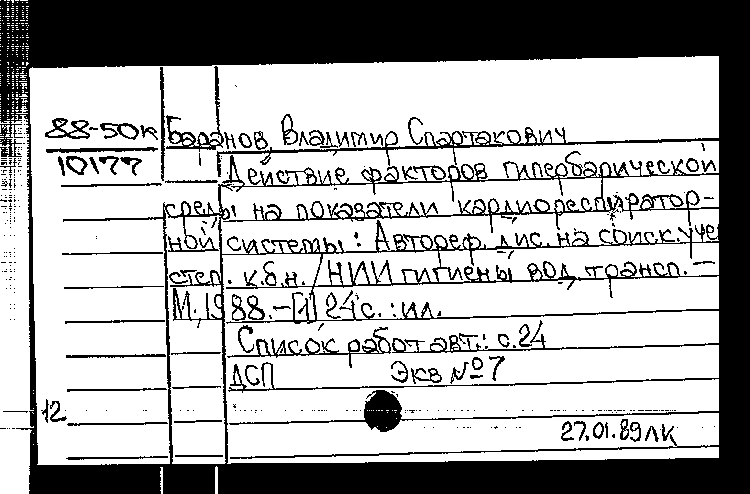 88-50к Баранов, Владимир Спартакович
10177 Действие факторов гипербарической
среды на показатели кардиореспиратор-
ной системы: Автореф. дис. на соиск. уче
степ. к.б.н. / НИИ гигиены вод. трансп. —
М., 1988. — [1] 24 с. : ил.
Список работ авт.: с. 24
ДСП Экз №7
12
27.01.89 ЛК